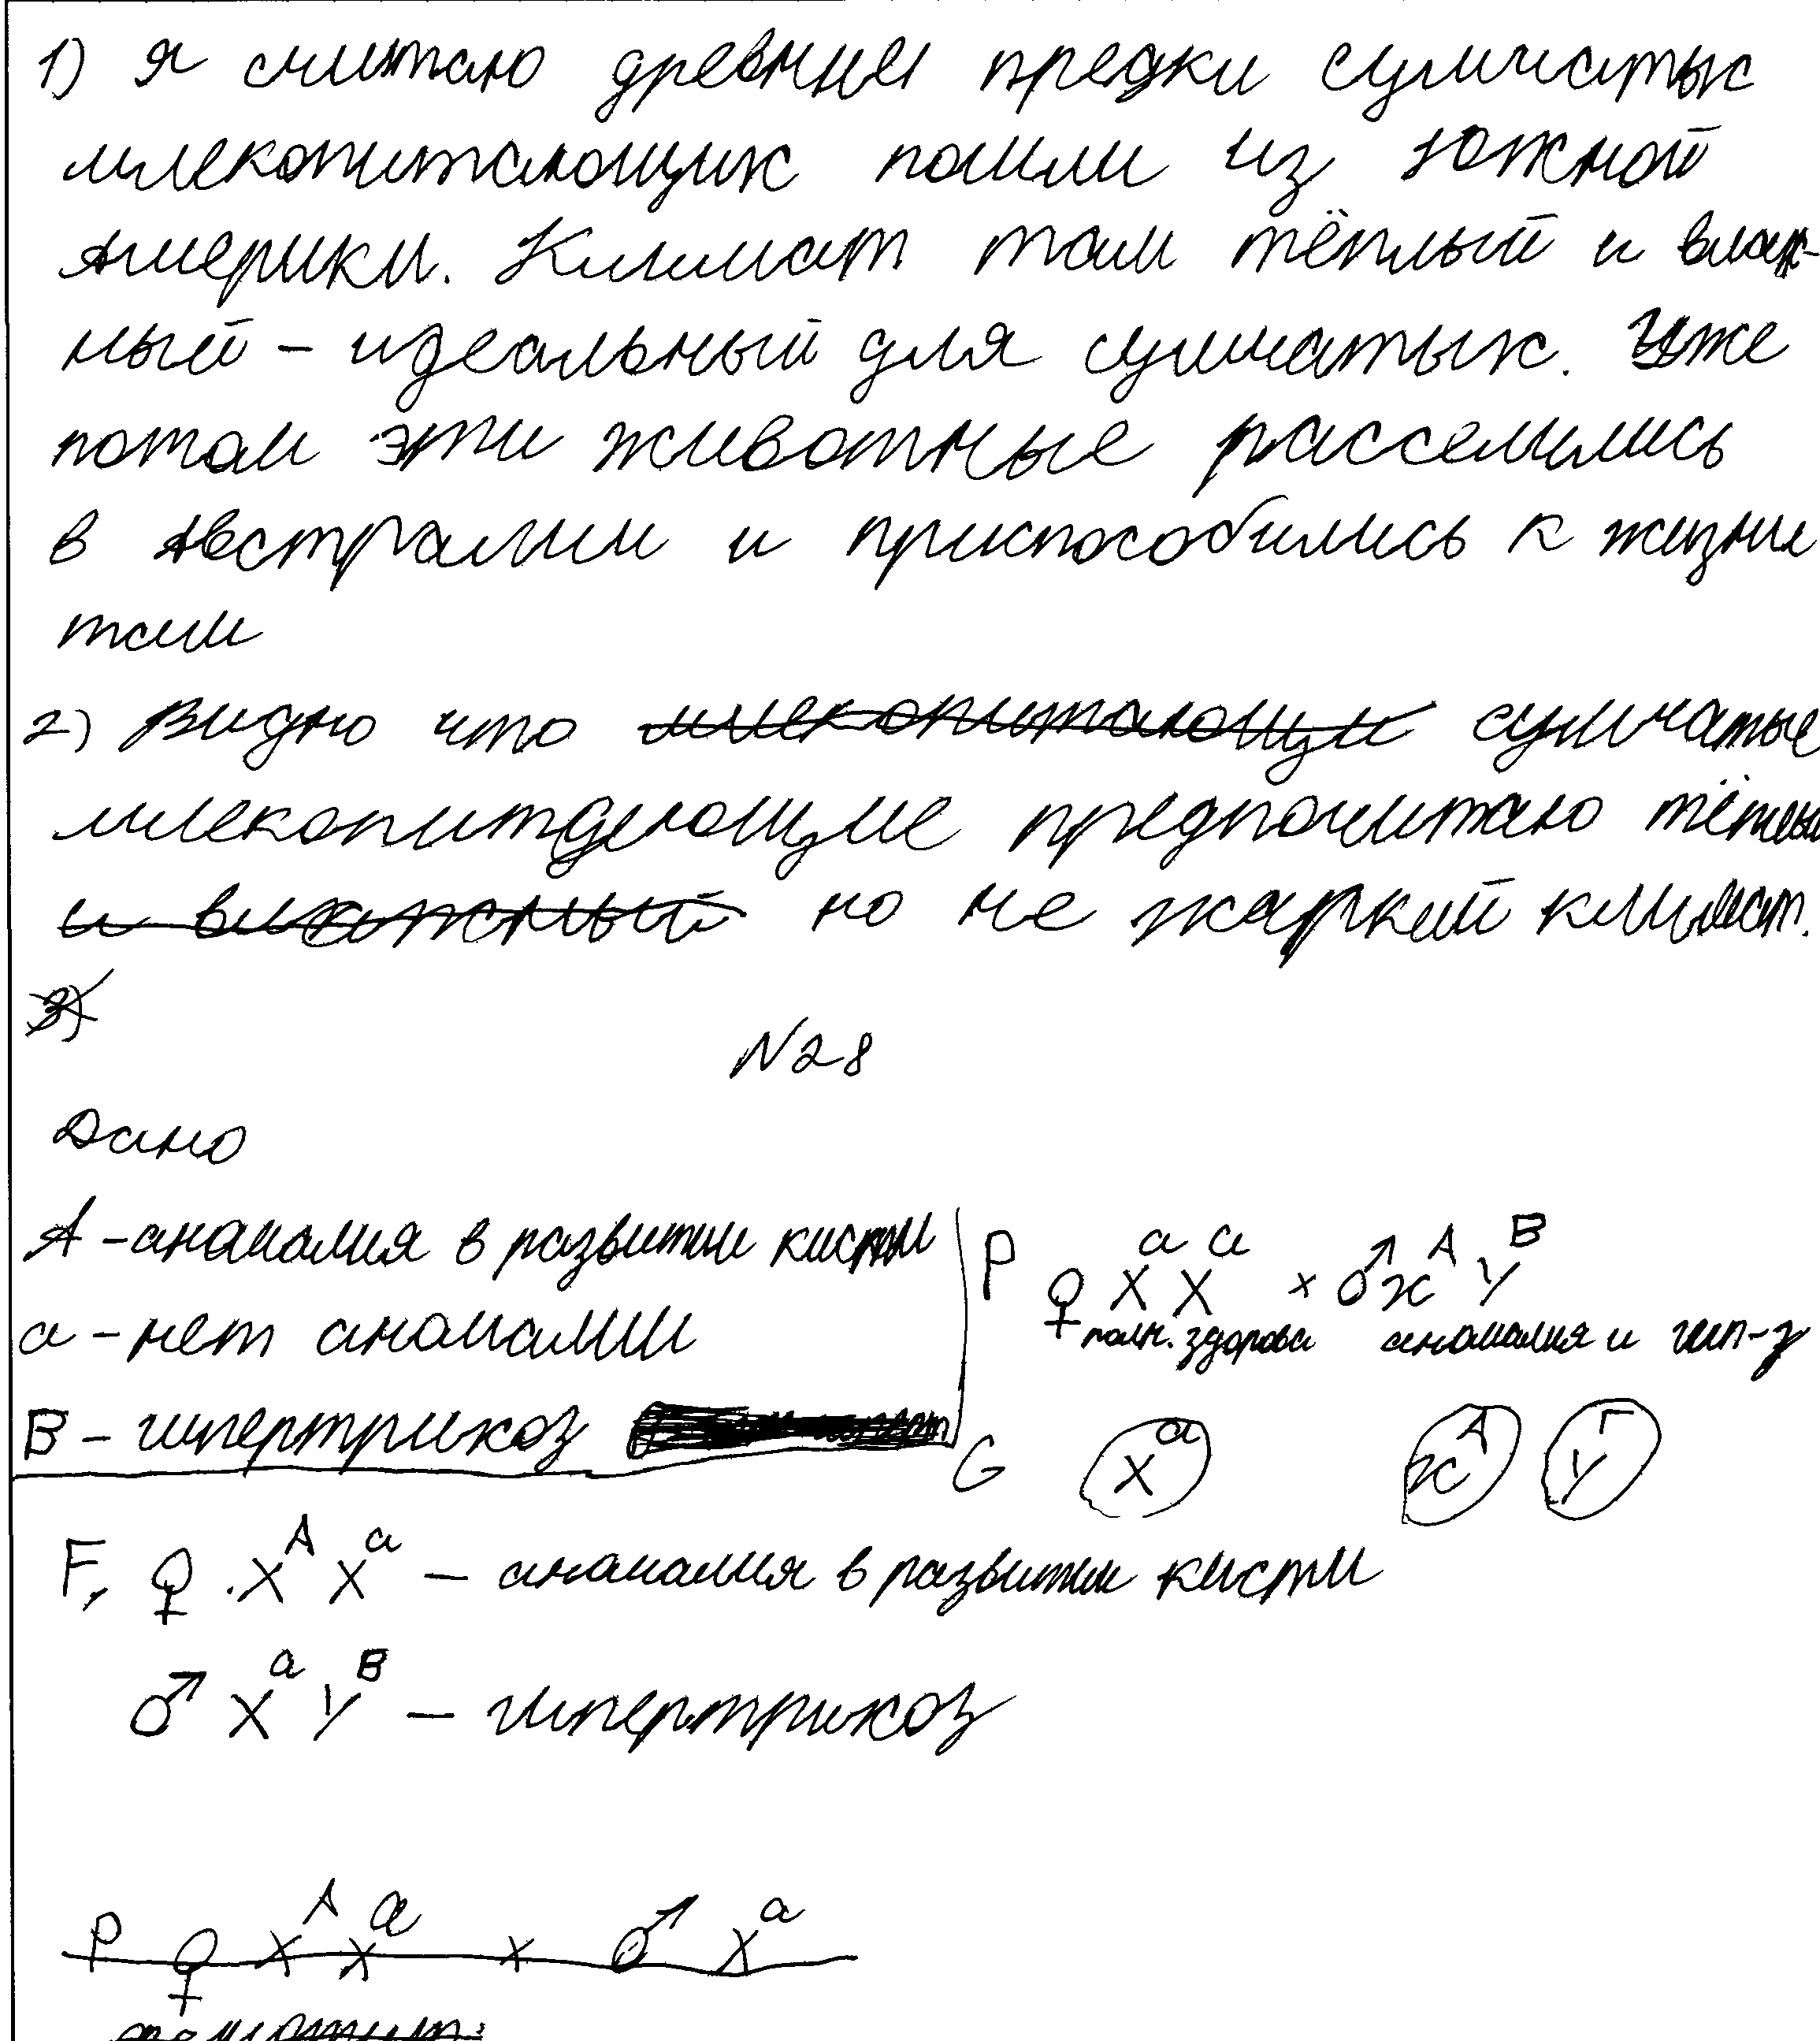 1) Я считаю древнии предки сумчатых
млекопитающих пошли из Южной
Америки. Климат там тёплый и влаж-
ный - идеальный для сумчатых. Уже
потом эти животные расселились
в Австралии и приспособились к жизни
там
2) Видно что млекопитающи сумчатые
млекопитающие предпочитаю тёплый
и влажный но не жаркий климат.
3)
N28
Дано
A - анамалия в развитии кисти
a - нет анамалии
B - гипертрикоз
P ♀ XᵃXᵃ × ♂ XᴬYᴮ
полн. здорова анамалия и гип-з
G Xᵃ Xᴬ Yᴦ
F₁ ♀ XᴬXᵃ — анамалия в развитии кисти
♂ XᵃYᴮ — гипертрикоз
P ♀ XᴬXᵃ × ♂ Xᵃ